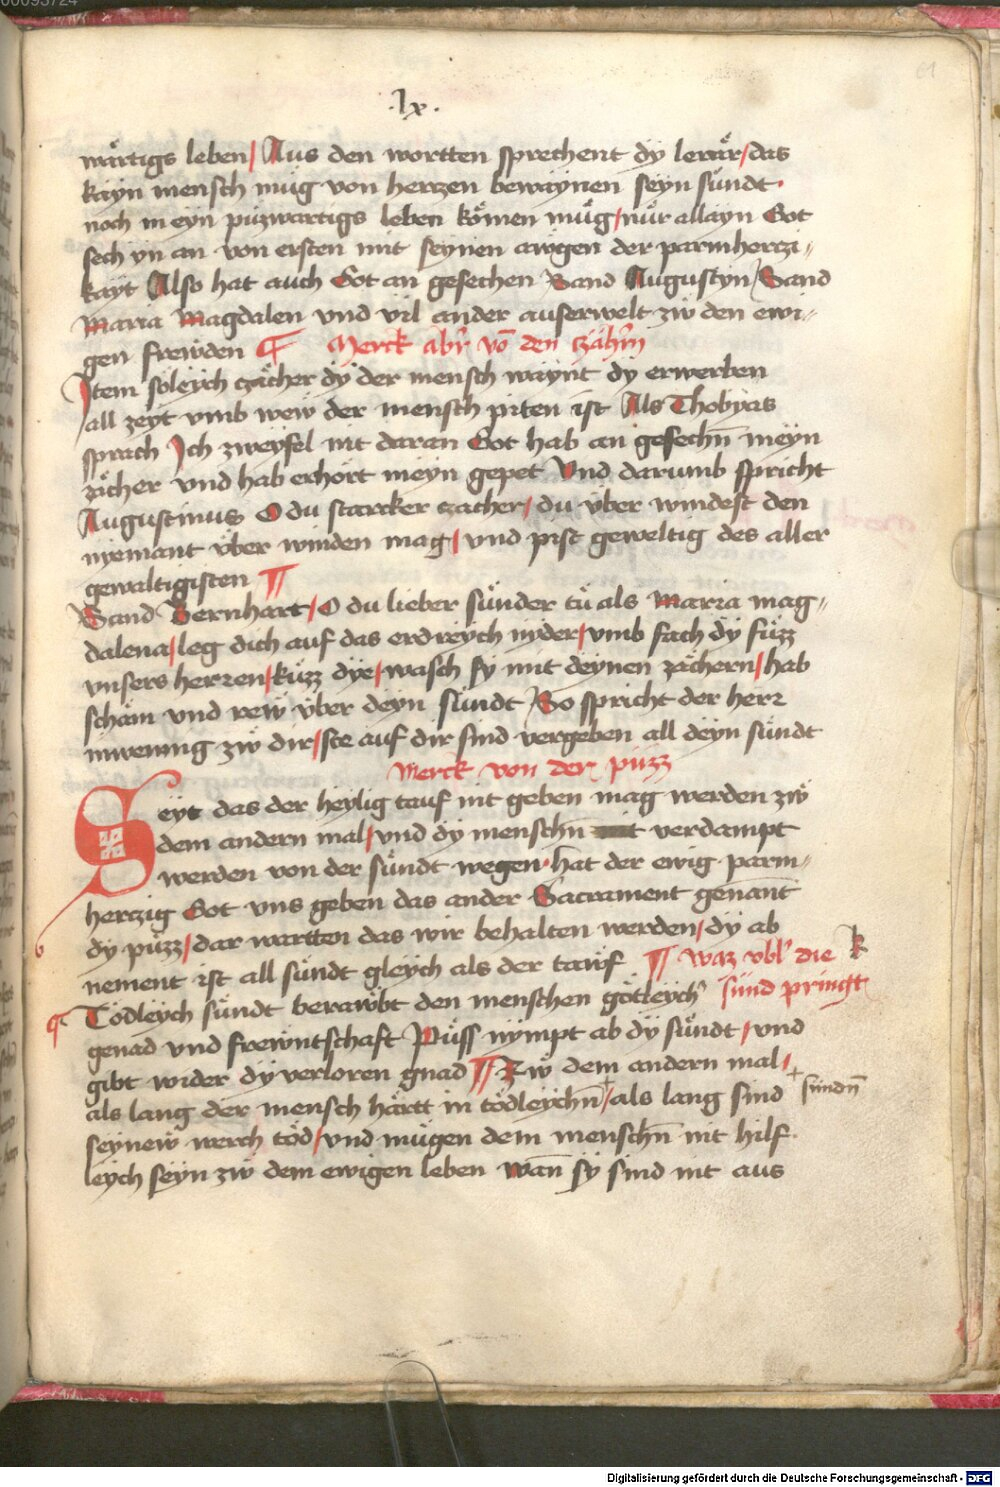 00093724
61
·lx·
wärtigs leben / Aus den wortten sprechent dy lerär / das
kayn mensch müg von herczen bewaynen seyn sündt ·
noch in eyn püzwartigs leben kömen müg / nür allayn Got
sech yn an von ersten mit seynen awgen der parmherczi〃
kayt Also hat auch Got an gesechen Sand Augustyn / Sand
Maria Magdalen vnd vil ander auserwelt zw den ewi〃
gen frewden ¶ Merck abr̃ vō den czähr̃n
Item soleych czächer dy der mensch waynt dy erwerben
all zeyt vmb wew der mensch piten ist Als Thobyas
sprach Ich zweyfel nit daran Got hab an gesechn̄ meyn
zächer vnd hab erhört meyn gepet Vnd darumb spricht
Augustinus O du starcker czacher / du über windest den
nyemant über winden mag / vnd pist geweltig des aller
gewaltigisten ¶
Sand Bernhart / O du lieber sünder tü als Maria mag〃
dalena / leg dich auf das erdreych nyder / vmb fach dy füzz
vnsers herren / küzz dye / wasch sy mit deynen zächern / hab
scham vnd rew über deyn sündt So spricht der herr
inwennig zw dir / ste auf dir sind vergeben all deyn sündt
Merck von der püzz
Seyt das der heylig tauf nit geben mag werden zw
dem andern mal / vnd dy menschn̄ nit verdampt
werden von der sündt wegen · hat der ewig parm〃
herczig Got vns geben das ander Sacrament genant
dy püzz / dar wartten das wir behalten werden / dy ab
nement ist all sündt gleych als der tawf ¶ waz vbl' die k
Tödleych sündt berawbt den menschen götleych' sünd pringt
genad vnd frewntschaft Püss nympt ab dy sündt / vnd
gibt wider dy verloren gnad ¶ Zw dem andern mal /
als lang der mensch härtt in tödleychn̄ + / als lang sind + sündn̄
seynew werch töd / vnd mügen dem menschn̄ nit hilf
leych seyn zw dem ewigen leben wan̄ sy sind nit aus
Digitalisierung gefördert durch die Deutsche Forschungsgemeinschaft - DFG